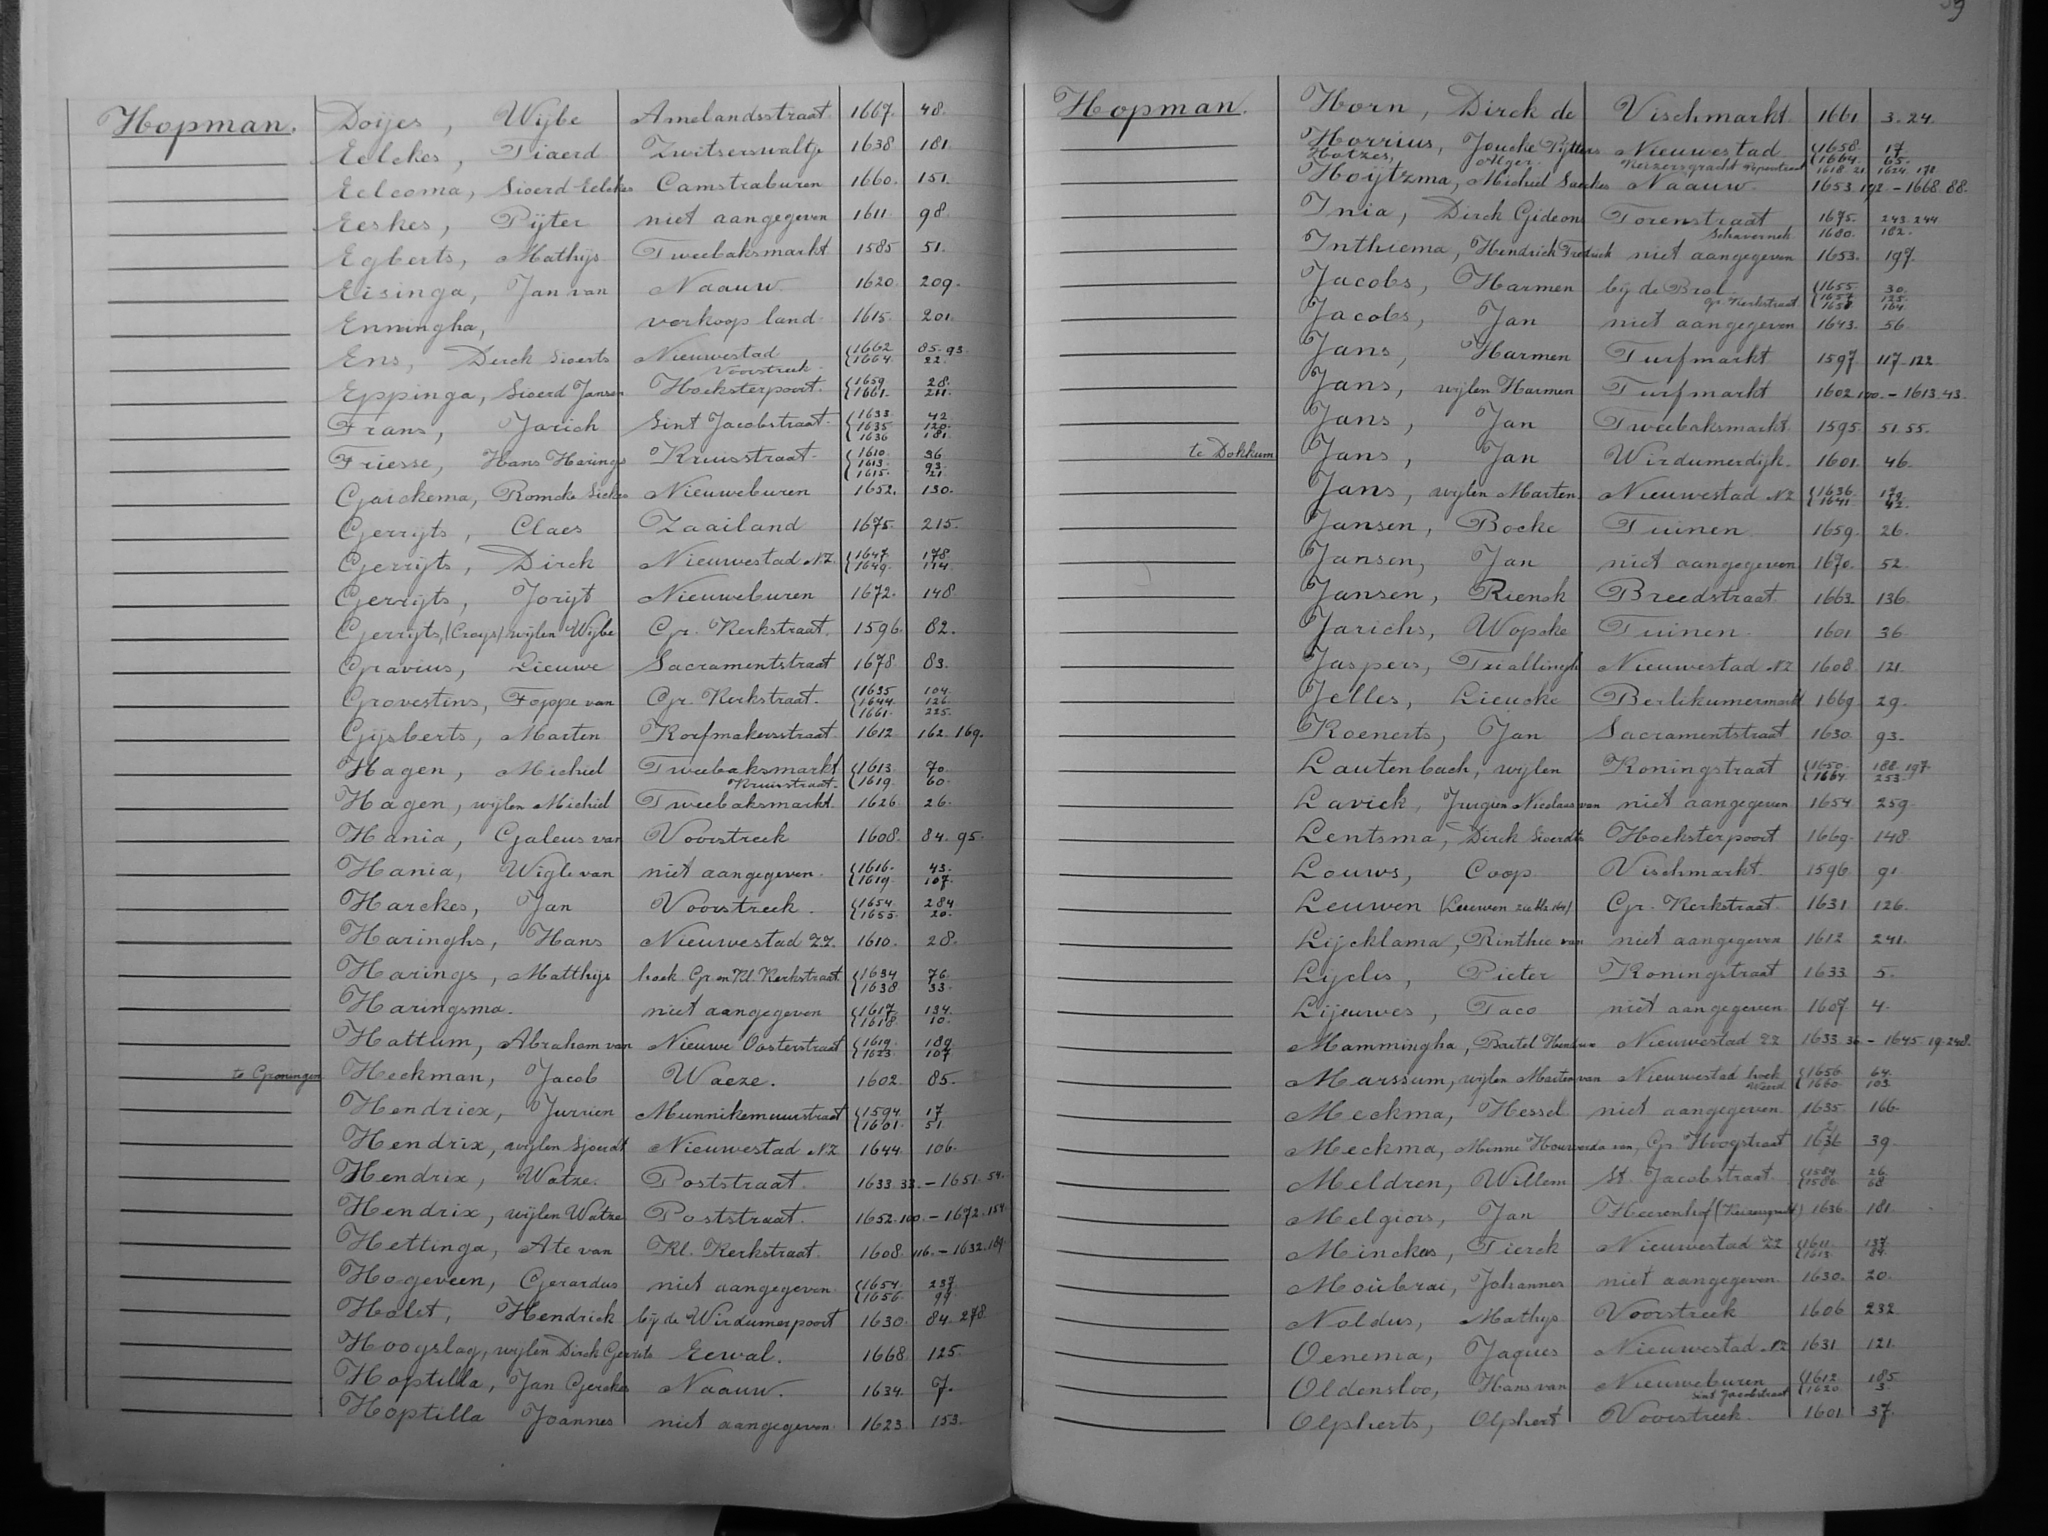 Hopman. Doijes, Wijbe Amelandsstraat. 1667. 48.
Eelckes, Tiaerd Zwitserswaltje 1638 181.
Eelcoma, Sioerd Eelckes Camstraburen 1660. 151.
Eeskes, Pijter niet aangegeven 1611 98.
Egberts, Mathijs Tweebaksmarkt 1585 51.
Eisinga, Jan van Naauw 1620. 209.
Enningha, verkoop land. 1615. 201.
Ens, Dirck Sioerts Nieuwestad 1662 85. 93.
Voorstreek. 1664. 22.
Eppinga, Sioerd Jansen Hoeksterpoort. 1659. 28.
1661. 211.
Frans, Jarich Sint Jacobstraat. 1633. 42
1635 120.
1636 181.
Friesse, Hans Harings Kruisstraat. 1610. 36
1613. 93.
1615. 21.
Gaickema, Romcke Sickes Nieuweburen 1652. 130.
Gerrijts, Claes Zaailand 1675. 215.
Gerrijts, Dirck Nieuwestad NZ. 1647. 178.
1649. 114.
Gerrijts, Jorijt Nieuweburen 1672. 148
Gerrijts, (Croys) wijlen Wijbe Gr. Kerkstraat. 1596. 82.
Gravius, Lieuwe Sacramentstraat 1678. 83.
Grovestins, Foppe van Gr. Kerkstraat. 1635 104.
1644. 126.
1661. 225.
Gijsberts, Marten Korfmakersstraat 1612 162. 169.
Hagen, Michiel Tweebaksmarkt 1613. 70.
Kruisstraat. 1619. 60.
Hagen, wijlen Michiel Tweebaksmarkt. 1626 26.
Hania, Galeus van Voorstreek 1608. 84. 95.
Hania, Wigle van niet aangegeven. 1616. 43.
1619. 107.
Harckes, Jan Voorstreek. 1654. 284
1655. 20.
Haringhs, Hans Nieuwestad ZZ. 1610. 28.
Harings, Matthijs hoek Gr en Kl. Kerkstraat. 1634 76.
1638 33.
Haringsma. niet aangegeven 1617. 134.
1618. 10.
Hattum, Abraham van Nieuwe Oosterstraat 1619. 189.
1623. 107
te Groningen Heckman, Jacob Waeze. 1602. 85.
Hendricx, Jurrien Munnikemuurstraat 1594. 17
1601. 51.
Hendrix, wijlen Sjoerdt Nieuwestad NZ 1644. 106.
Hendrix, Watze. Poststraat. 1633. 33. - 1651. 54.
Hendrix, wijlen Watze Poststraat. 1652. 100. - 1672. 154
Hettinga, Ate van Kl. Kerkstraat. 1608. 116. - 1632. 189.
Hogeveen, Gerardus niet aangegeven. 1654. 237
1656. 99
Holst, Hendrick bij de Wirdumerpoort 1630. 84. 278.
Hooyslag, wijlen Dirck Gerrits Eewal. 1668. 125.
Hoptilla, Jan Gerckes Naauw. 1634. 7.
Hoptilla Joannes niet aangegeven. 1623. 153.
Hopman. Horn, Dirck de Vischmarkt. 1661. 3. 24.
Horrius, Joucke Pijtters Nieuwestad 1658. 17.
1664. 65.
Hotzes, Alger. Keizersgracht Pijpenstraat 1618. 21. 1624. 170
Hoytzma, Michiel Saeckes Naauw. 1653. 192. - 1668. 88.
Inia, Dirck Gideon Torenstraat 1675. 243. 244.
Schavernek 1680. 182.
Inthiema, Hendrick Fredrick niet aangegeven 1653. 197.
Jacobs, Harmen bij de Brol. 1655 30.
gr. Kerkstraat. 1657 125.
1658 164.
Jacobs, Jan niet aangegeven 1643. 56
Jans, Harmen Turfmarkt 1597. 117. 122
Jans, wijlen Harmen Turfmarkt 1602. 100. - 1613. 43.
Jans, Jan Tweebaksmarkt. 1595. 51. 55.
te Dokkum Jans, Jan Wirdumerdijk. 1601. 46.
Jans, wijlen Marten. Nieuwestad NZ 1636. 179.
1641. 42.
Jansen, Bocke Tuinen. 1659. 26.
Jansen, Jan niet aangegeven 1670. 52.
Jansen, Rienck Breedstraat. 1663. 136.
Jarichs, Wopcke Tuinen. 1601 36.
Jaspers, Tiallingh Nieuwestad NZ 1608. 121.
Jelles, Lieucke Berlikumermarkt 1669. 29.
Koenerts, Jan Sacramentstraat 1630. 93.
Lautenbach, wijlen Koningstraat 1650. 188. 197.
1664. 253.
Lavick, Jurgien Nicolaas van niet aangegeven. 1654. 259.
Lentsma, Dirck Sioerdts Hoeksterpoort 1669. 148.
Louws, Coop Vischmarkt. 1596. 91.
Leuwen (Leeuwen zie blz 164) Gr. Kerkstraat. 1631. 126.
Lijcklama, Rinthie van niet aangegeven 1612 241.
Lijclis, Pieter Koningstraat 1633 5.
Lijeuwes, Taco niet aangegeven. 1607 4.
Mammingha, Bartel Hendrix Nieuwestad ZZ 1633. 36 - 1645. 19. 248.
Marssum, wijlen Marten van Nieuwestad hoek 1656. 64.
Weerd. 1660. 103.
Meckma, Hessel niet aangegeven. 1635. 166.
Meckma, Minne Houwerda van, Gr. Hoogstraat 1636 39.
Meldren, Willem St. Jacobstraat. 1584. 26.
1586. 68
Melgiors, Jan Heerenhof (Keizersgracht) 1636 181.
Minckes, Tierck Nieuwestad ZZ 1611. 137.
1613. 84.
Moubrai, Johannes niet aangegeven. 1630. 20.
Noldus, Mathijs Voorstreek 1606 232
Oenema, Jaques Nieuwestad NZ 1631 121.
Oldensloo, Hans van Nieuweburen 1612 185.
Sint Jacobstraat 1620. 3.
Olpherts, Olphert Voorstreek. 1601 37.